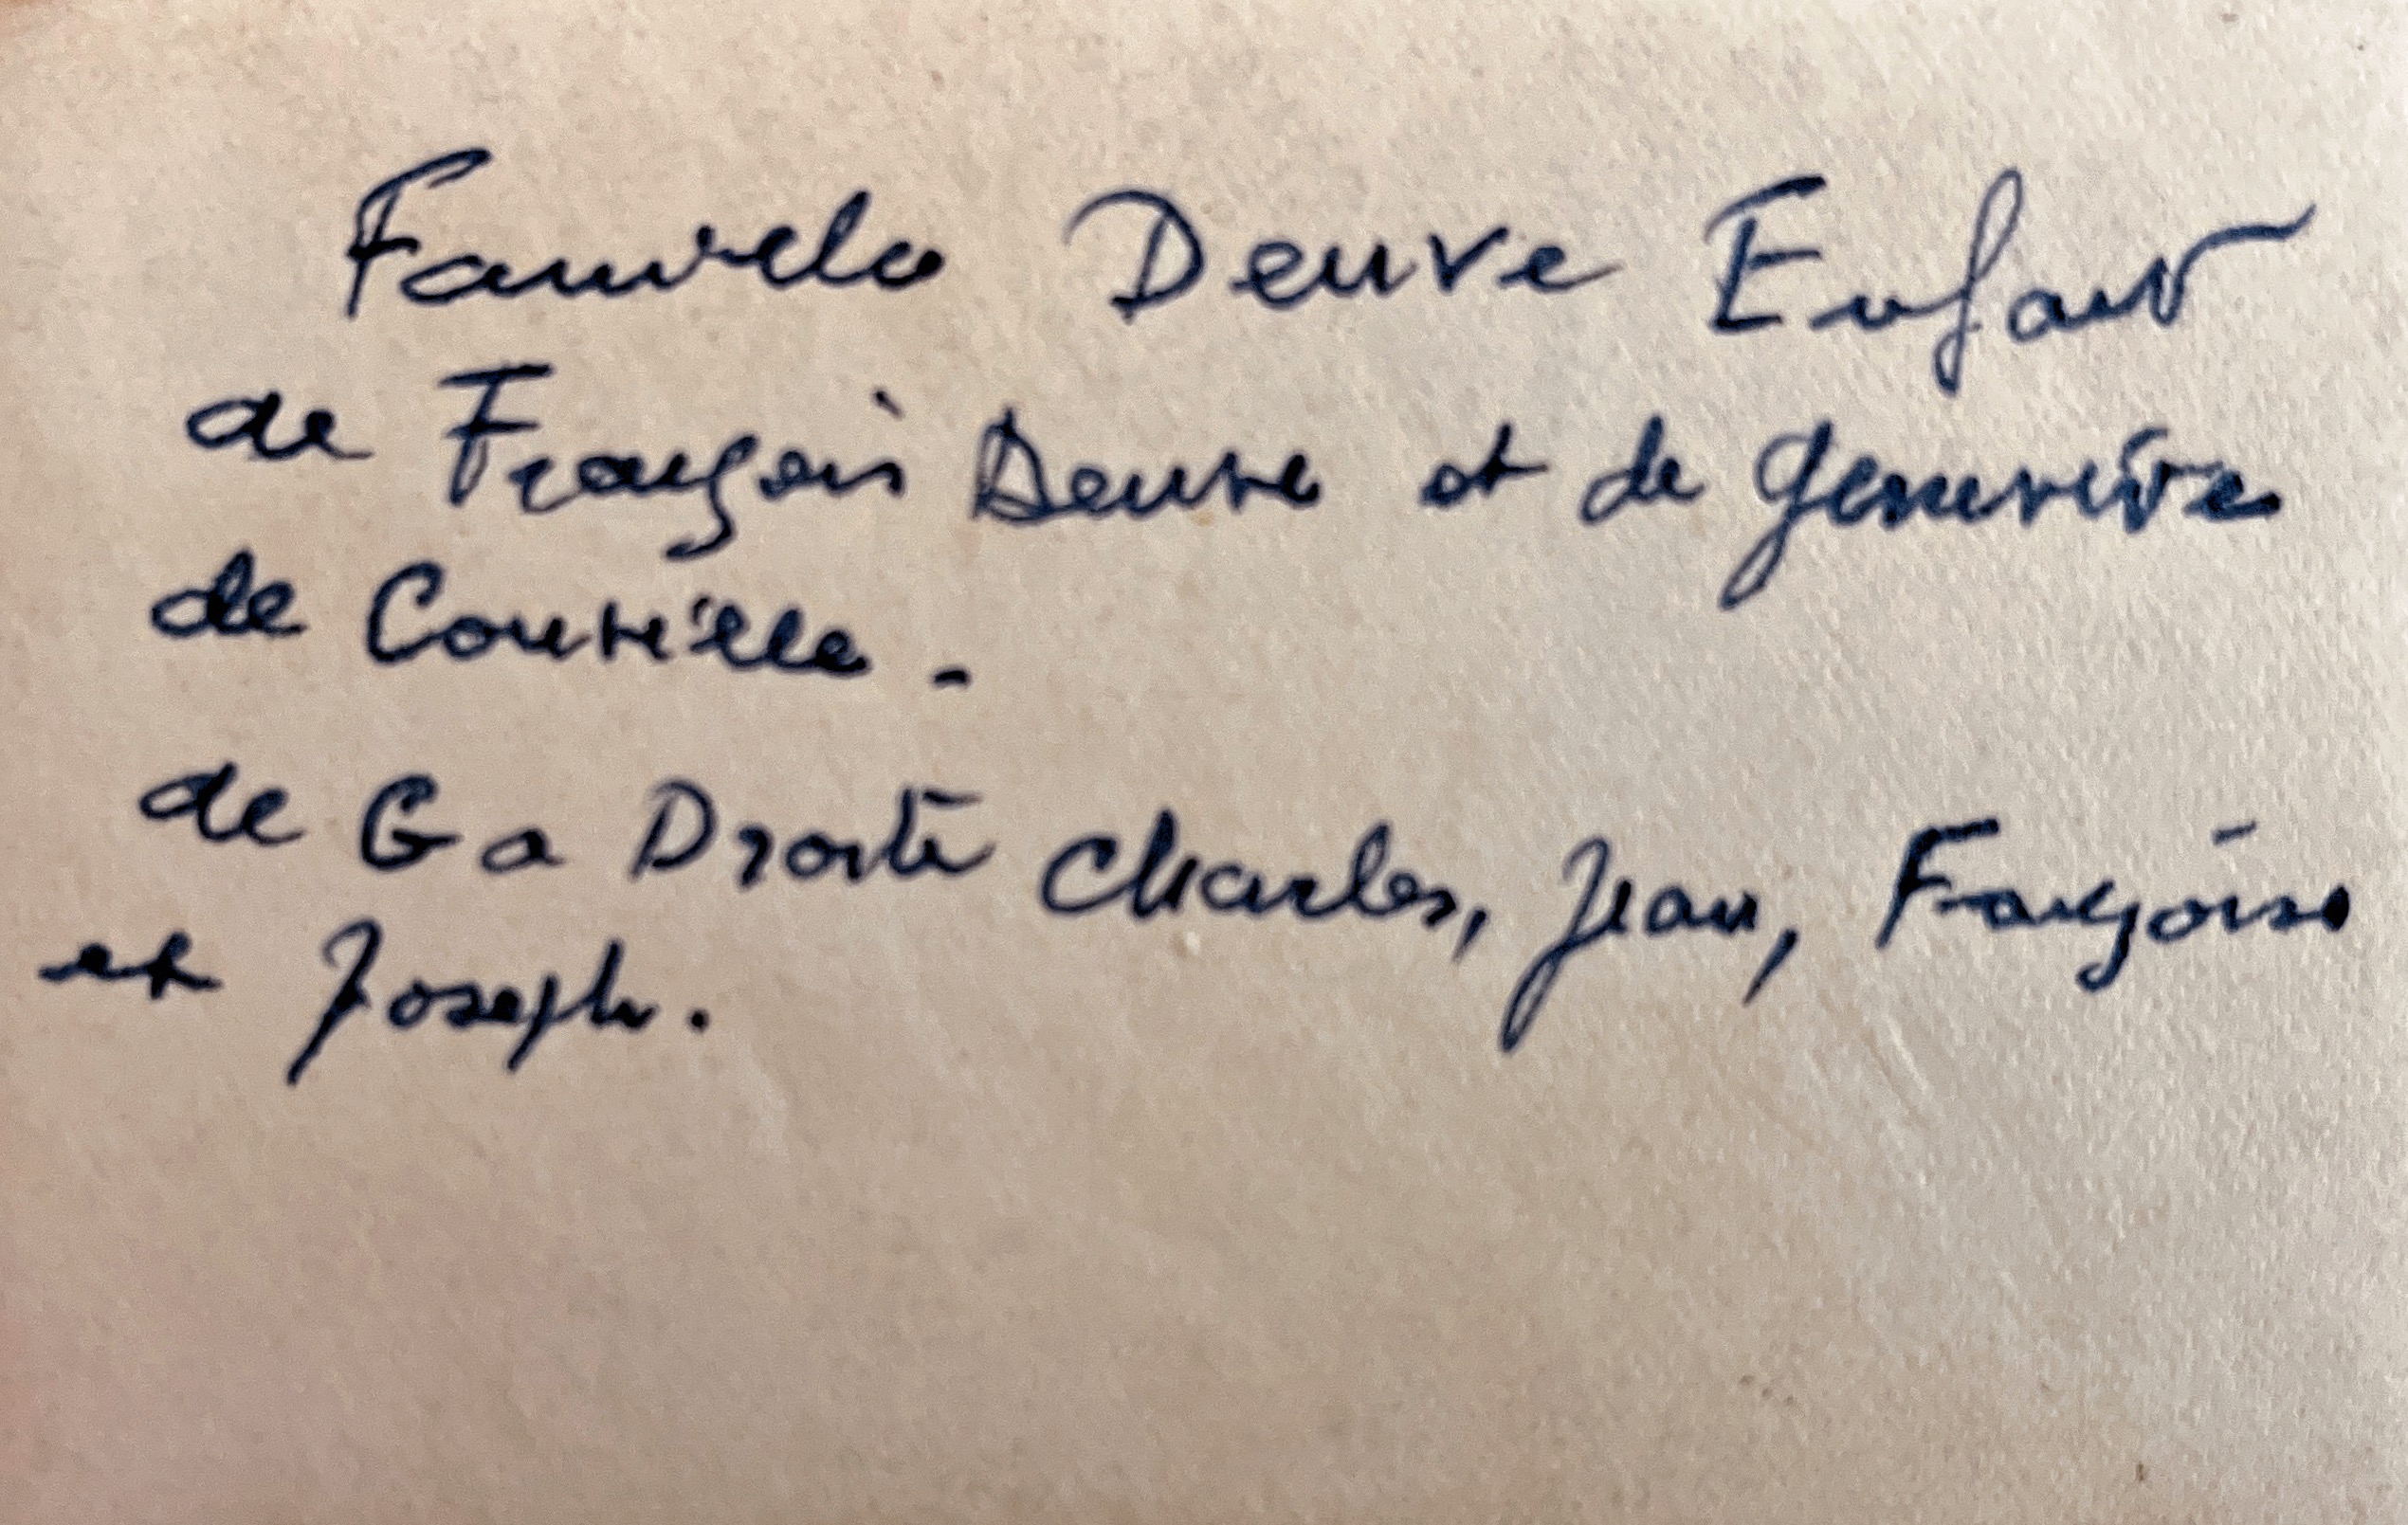 Famille Deuve Enfant
de François Deuve et de Geneviève
de Couville -
de G a Droite Charles, Jean, Françoise
et Joseph.